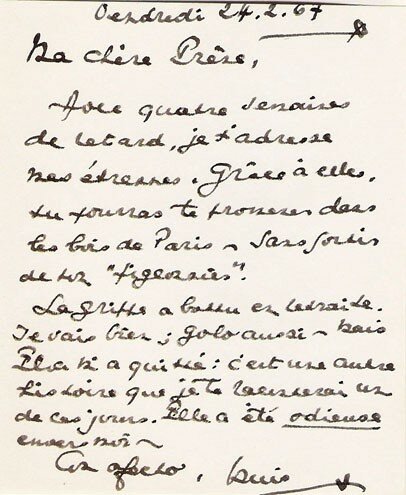 Vendredi 24.2.67
Ma chère Prêse,
Avec quatre semaines
de retard, je t'adresse
mes étrennes. Grâce à elles,
tu pourras te promener dans
les bois de Paris - sans sortir
de ton "
La grippe a battu en retraite.
Je vais bien ; Golo aussi - mais
m'a quitté : c'est une autre
histoire que je te raconterai un
de ces jours. Elle a été odieuse
envers moi -
Con afecto,